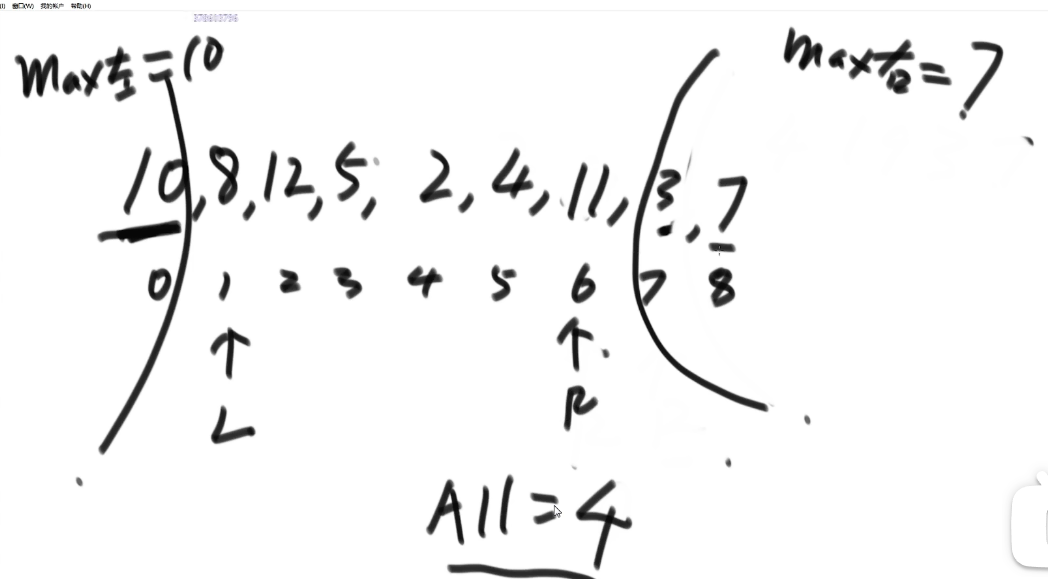 窗口(W) 我的帐户 帮助(H)
Max左=10
Max右=7
10,8,12,5,2,4,11,3,7
0 1 2 3 4 5 6 7 8
↑ ↑
L R
All=4